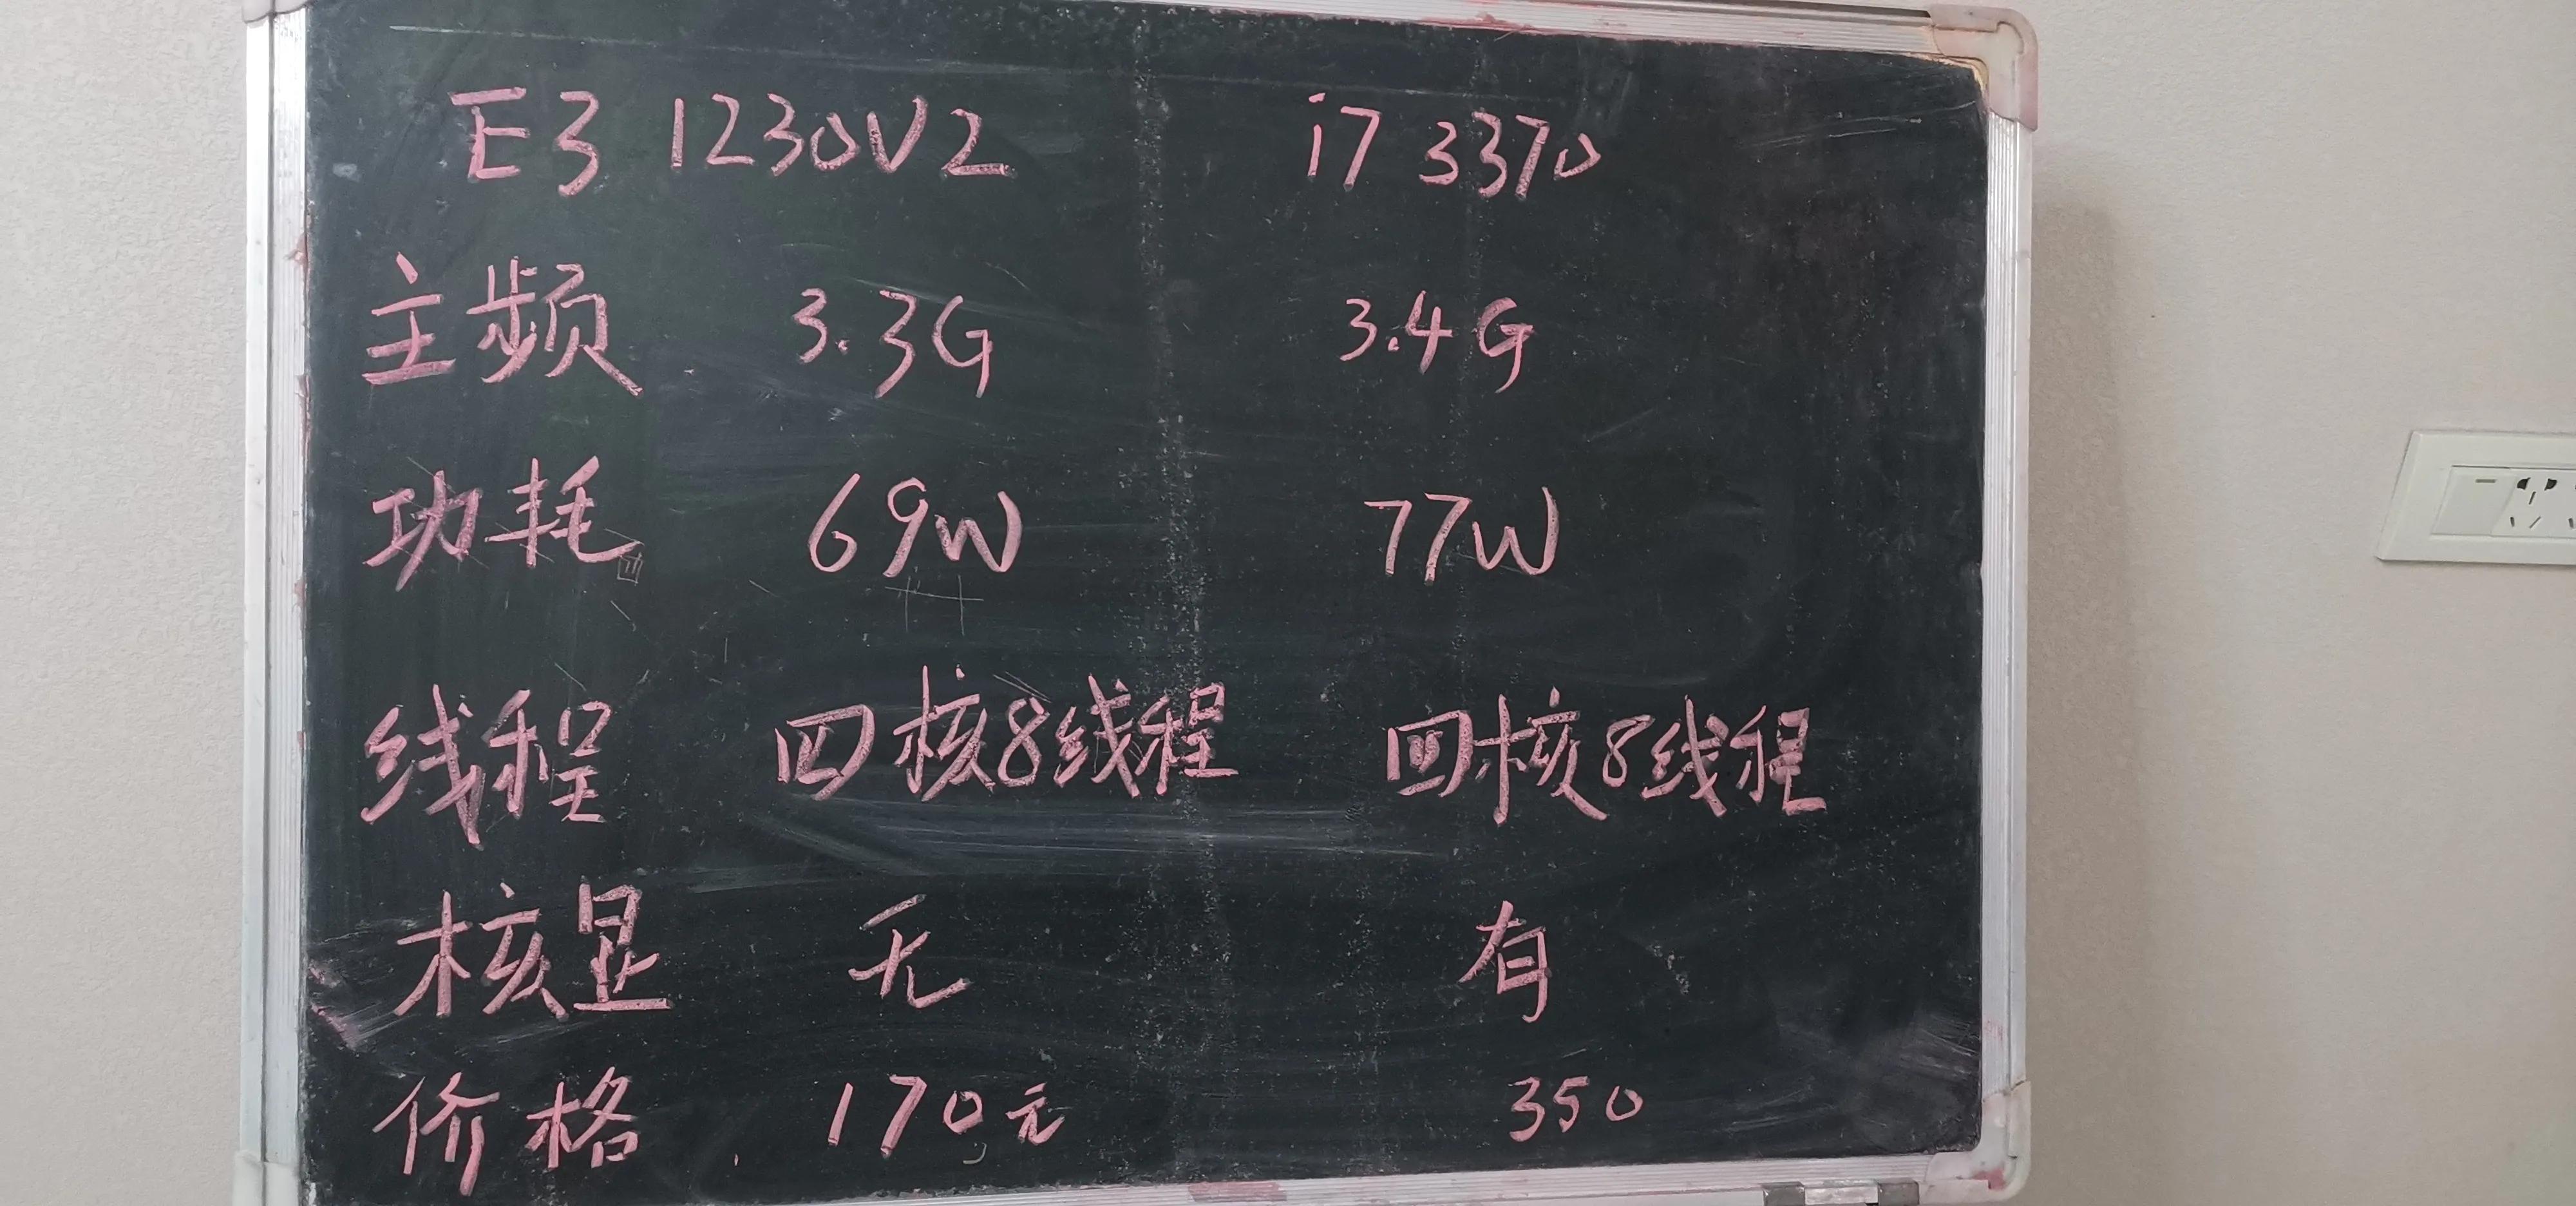 E3 1230V2 i7 3370
主频 3.3G 3.4G
功耗 69W 77W
线程 四核8线程 四核8线程
核显 无 有
价格 170元 350